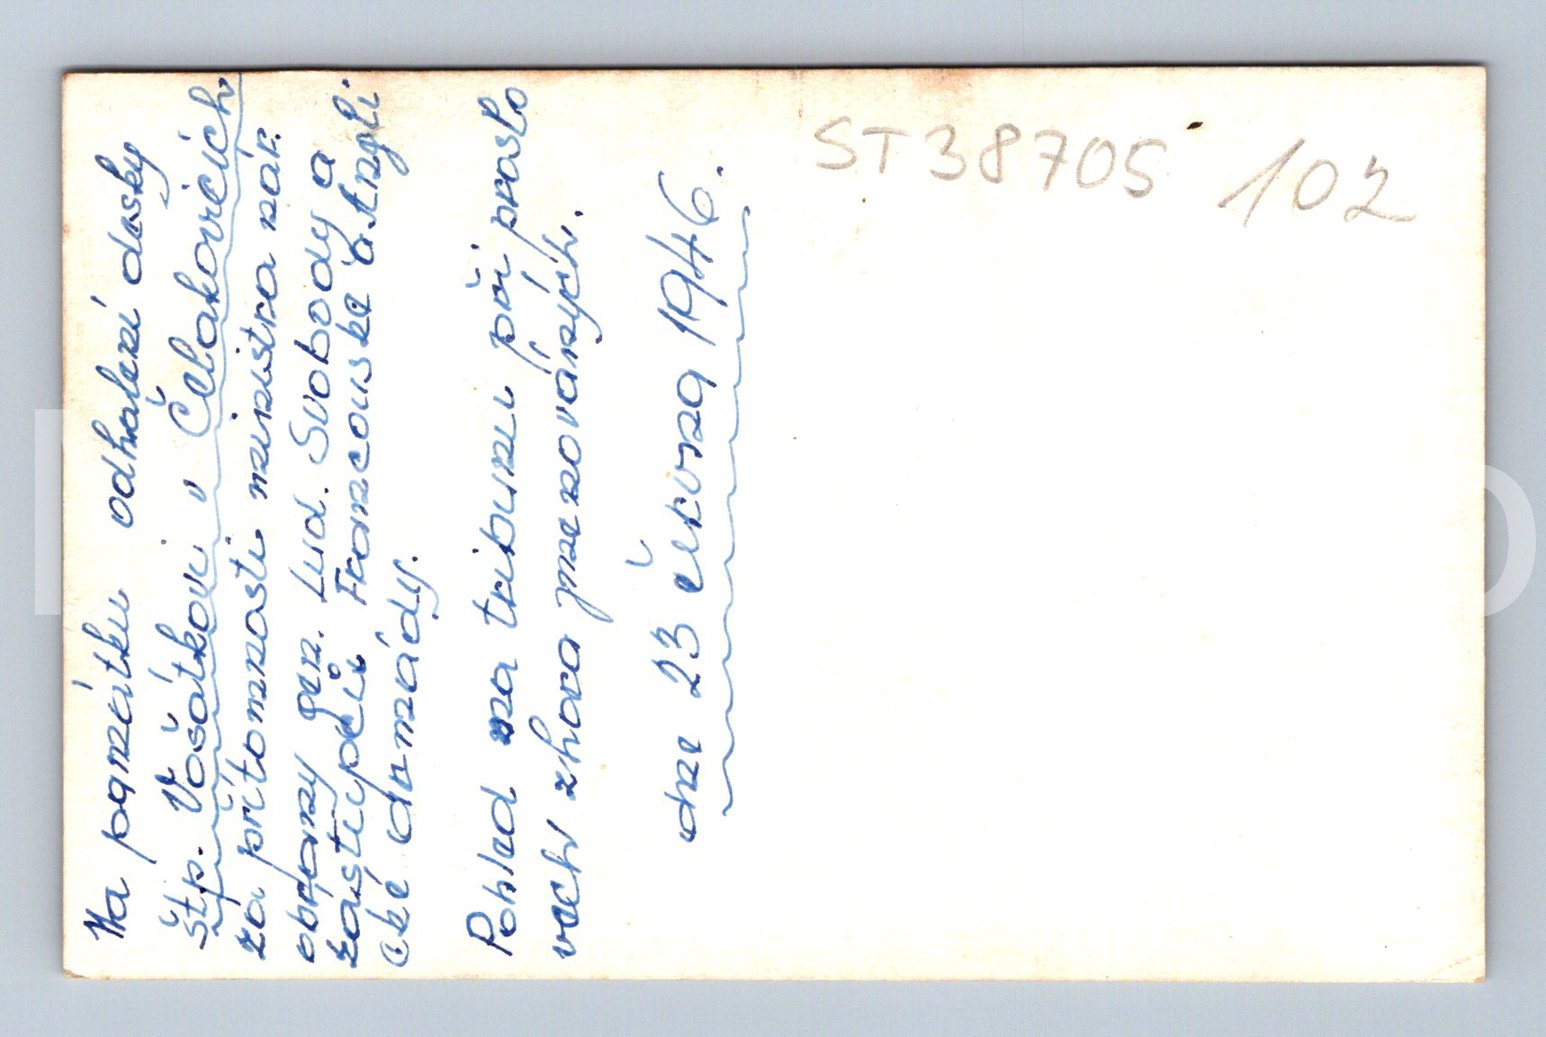 Na památku odhalení desky
štp. Vošátkovi v Čelakovicích
za přítomnosti ministra nár.
obrany gen. Lud. Svobody a
zástupců Francouské a Angli-
cké armády.
Pohled na tribunu při proslo
vech zhora jmenovaných.
dne 23 června 1946.
ST38705 102